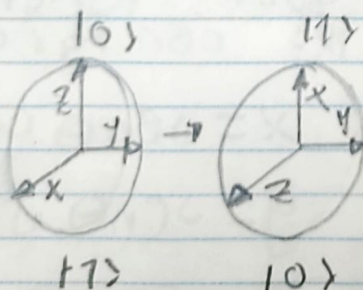 |0⟩ |1⟩
z y x → x y z
|1⟩ |0⟩